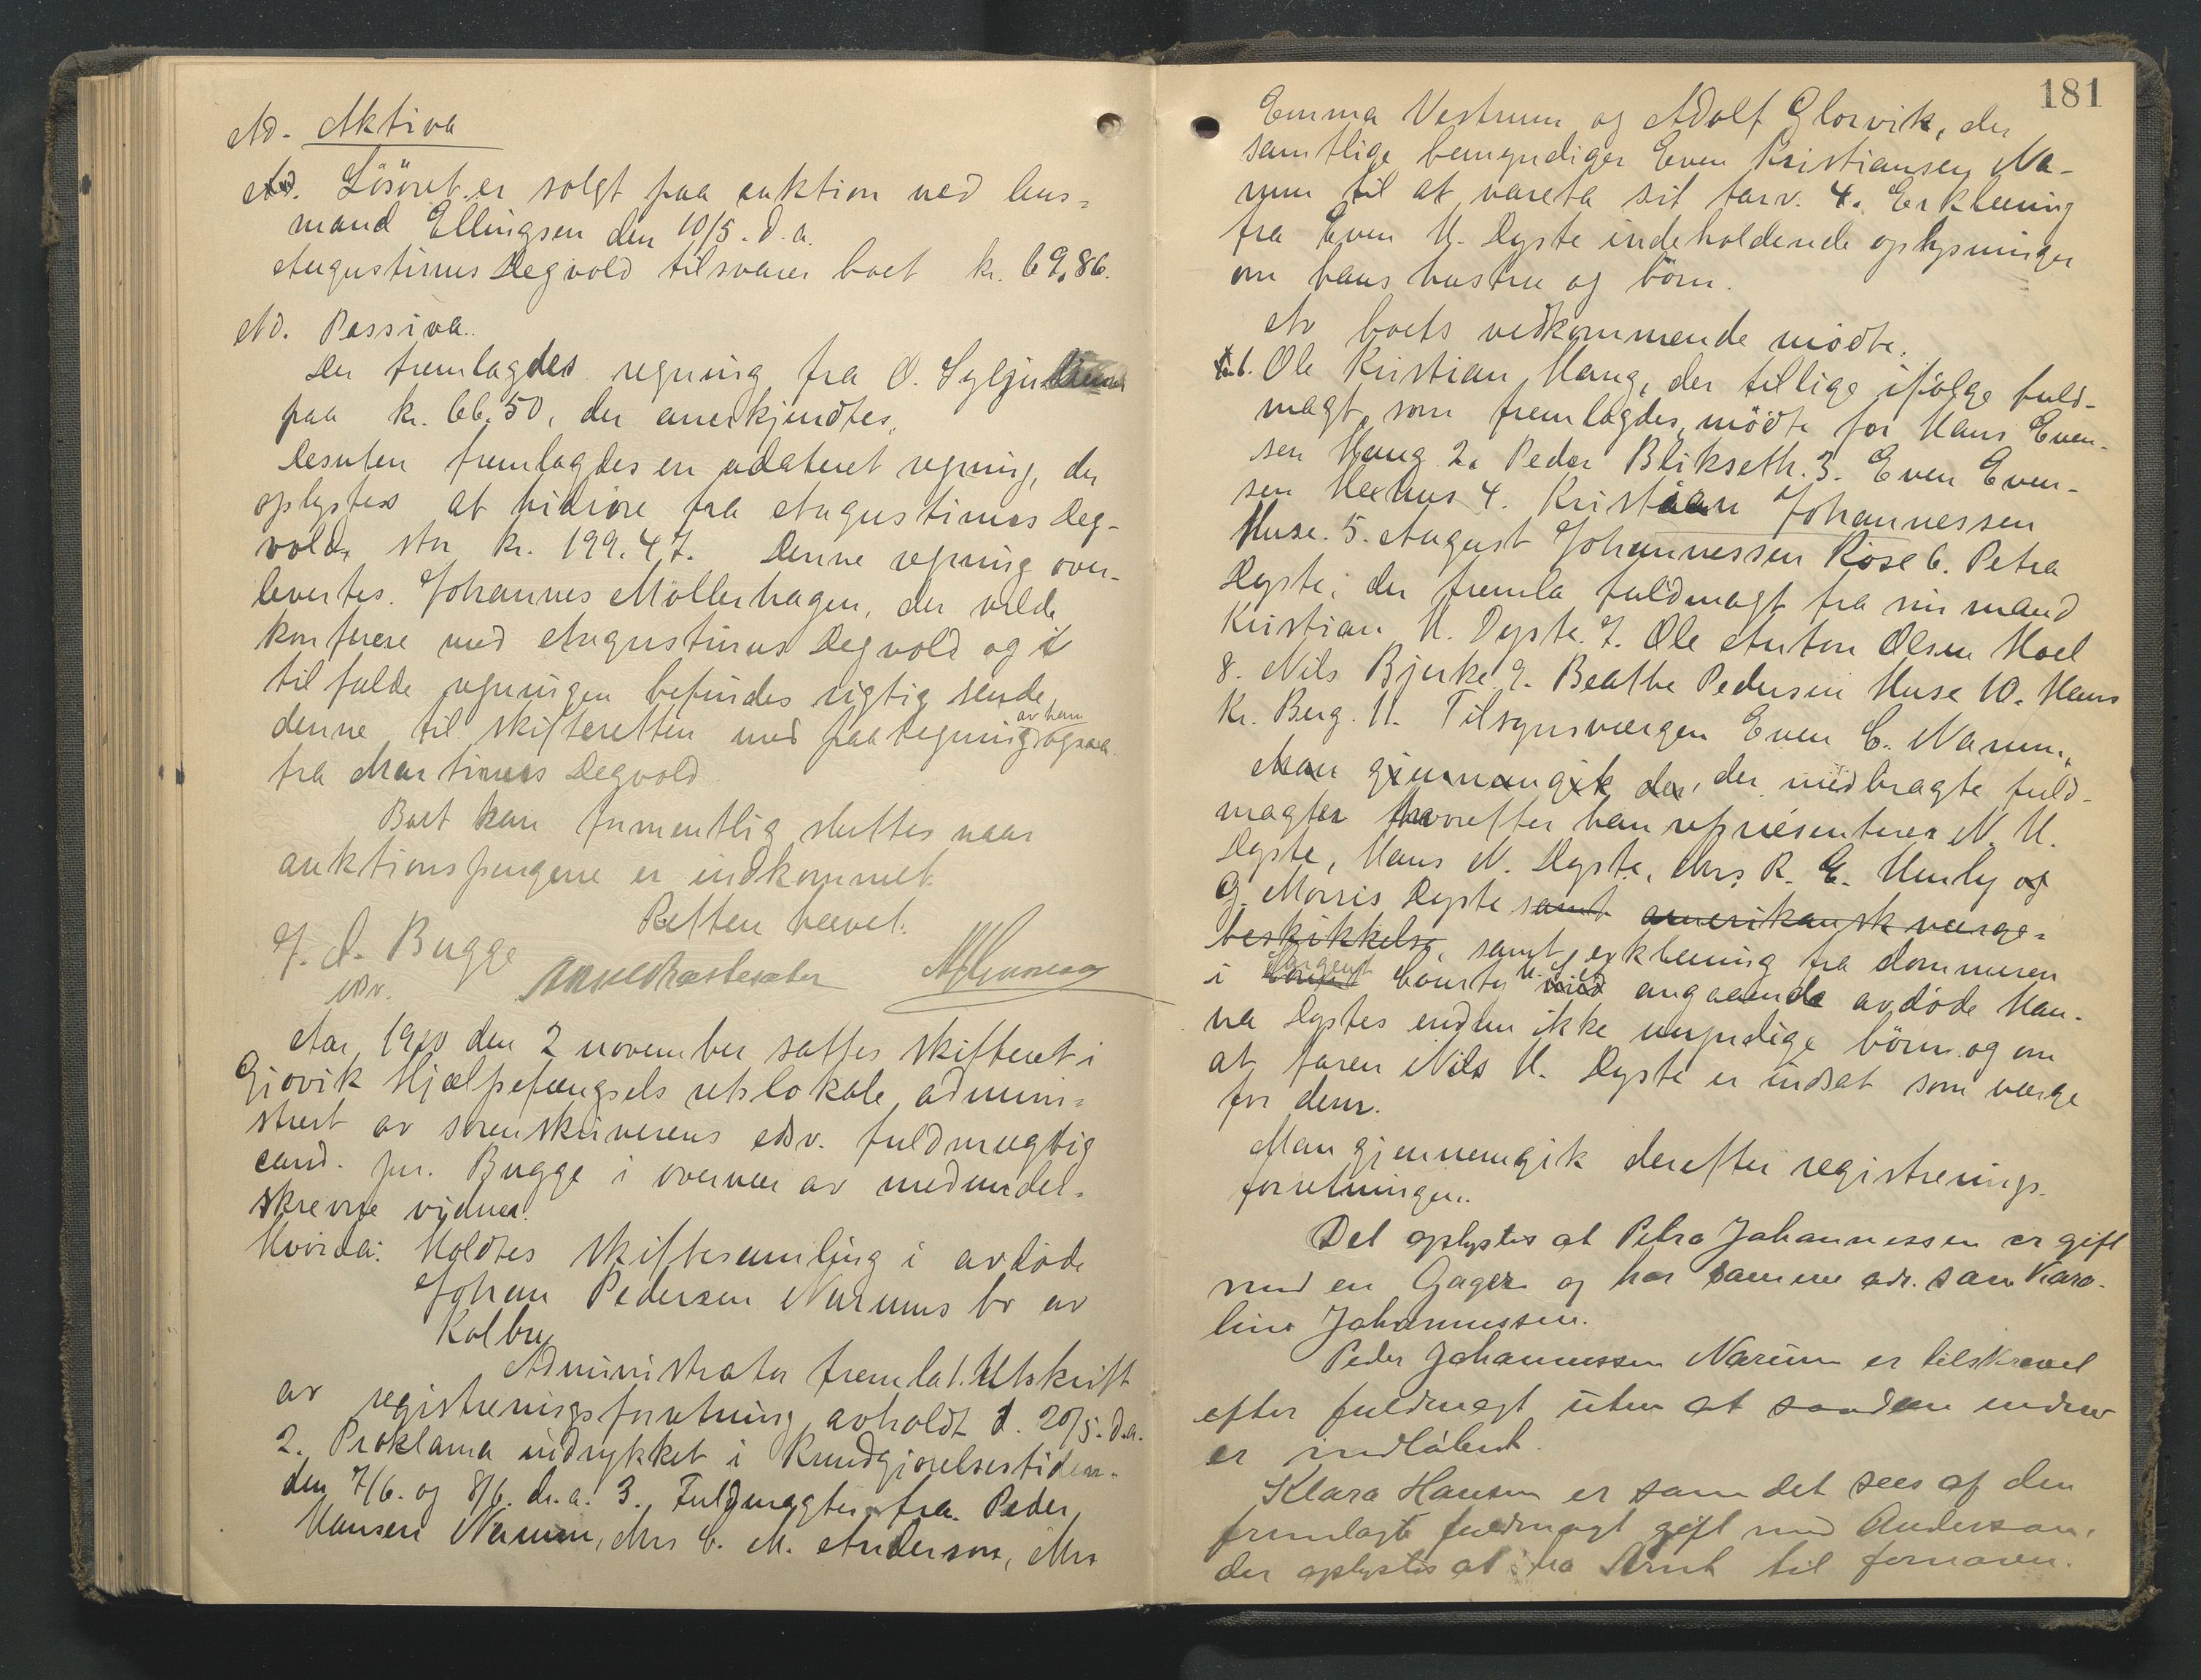 Ad. Aktiva
Ad. Løsøret er solgt paa auktion ved lens=
mand Ellingsen den 10/5. d.a.
Augustinus Degvold tilsvarer boet kr. 69,86.
Ad. Passiva.
Der fremlagdes regning fra O. Sylju
paa kr. 66.50, der anerkjendtes.
Desuten fremlagdes en udateret regning, der
oplystes at hidrøre fra Augustinus Deg-
vold, stor kr. 199.47. Denne regning over-
levertes Johannes Møllerhagen, der vilde
konferere med Augustinus Degvold og i
tilfælde regningen befindes rigtig sende
av ham
denne til skifteretten med paategning ogsaa
fra Martinius Degvold
Boet kan formentlig sluttes naar
auktionspengene er indkommet.
Retten hævet.
J. A. Bugge
edsv.
Aar 1910 den 2 november sattes skifteret i
Gjøvik Hjælpefængsels retslokale, admini=
strert av sorenskriverens edsv. fuldmægtig
cand. jur. Bugge i overvær av medunder=
skrevne vidner.
Hvorda: Holdtes skiftesamling i avdøde
Johan Pedersen Narums bo av
Kolbu
Administrator fremla 1. Utskrift
av registreringsforretning avholdt d. 20/5. d.a.
2. Proklama indrykket i Kundgjørelsestiden-
den 7/6. og 8/6. d.a. 3. Fuldmagter fra Peder
Hansen Narum, Mrs C. M. Anderson, Mrs
181
Emma Vestrum og Adolf Glorvik, der
samtlige bemyndiger Even Kristiansen Na-
rum til at vareta sit tarv. 4. Erklæring
fra Even H. Dyste indeholdende oplysninger
om hans hustru og børn.
Av boets vedkommende mødte.
1. Ole Kristian Haug, der tillige ifølge fuld-
magt, som fremlagdes, mødte for Hans Even-
sen Haug 2. Peder Blikseth. 3. Even Even-
sen 4. Kristian Johannessen
Huse. 5. August Johannessen Rose 6. Petra
Dyste, der fremla fuldmagt fra sin mand
Kristian H. Dyste. 7. Ole Anton Olsen Hoel
8. Nils Bjerke 9. Beathe Pedersen Huse 10. Hans
Kr. Berg. 11. Tilsynsværgen Even C. Narum,
Man gjennemgik der, der medbragte fuld-
magter hvorefter han repræsenterer N. H.
Dyste, Hans N. Dyste, Mrs R. E. Henly og
G. Morris Dyste samt amerikansk værge=
beskikkelse, samt erklæring fra dommeren
Sargent
i County angaaende avdøde Han-
na Dystes endnu ikke myndige børn og om
at faren Nils H. Dyste er indsat som værge
for dem.
Man gjennemgik derefter registrerings-
forretningen.
Det oplystes at Petra Johannessen er gift
med en Gager og har samme adr. som Karo-
line Johannessen.
Peder Johannessen Narum er tilskrevet
efter fuldmagt uten at saadan endnu
er indløbet.
Klara Hansen er som det sees af den
fremlagte fuldmagt gift med Anderson,
der oplystes at ha Arnt til fornavn.